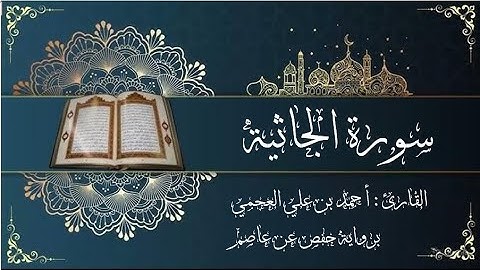 سورة الجاثية
القارئ : أحمد بن علي العجمي
برواية حفص عن عاصم